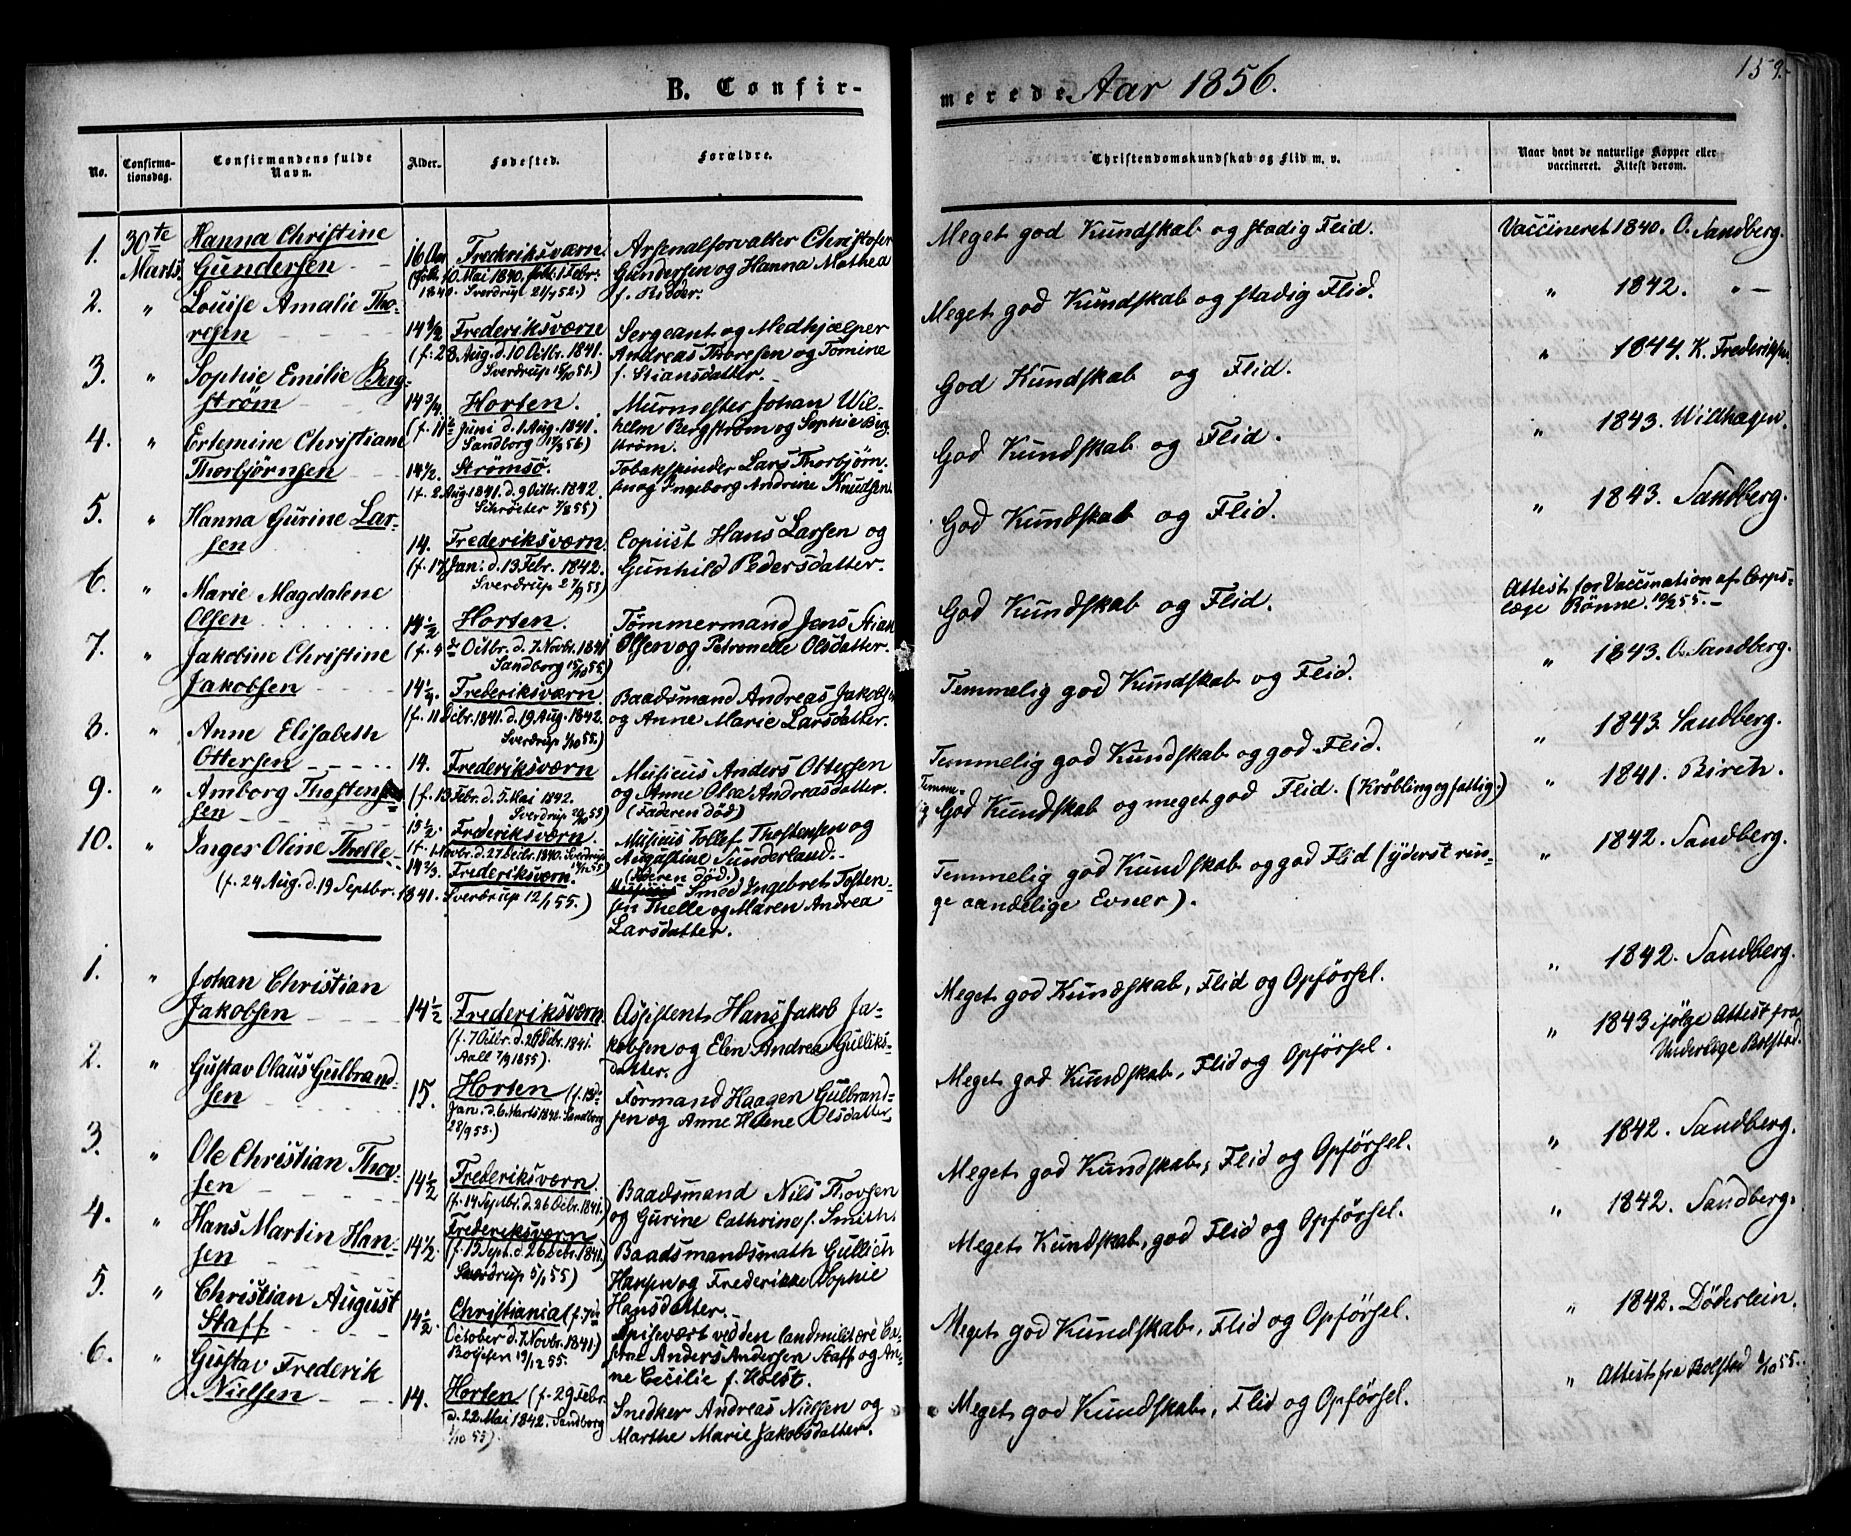 B. Confir-
merede Aar 1856.
159.
No.
Confirma-
tionsdag.
Confirmandens fulde
Navn.
Alder.
Fødested.
Forældre.
Christendomskundskab og Flid m. v.
Naar havt de naturlige Kopper eller
vaccineret. Attest derom.
1. 30te Marts. Hanna Christine
Gundersen
16 Aar Frederiksværn
Mai 1840.
1840. Sverdrup 21/1 52.)
Arsenalforvalter Christofer
Gundersen og Hanna Mathea
f. Ridder.
Meget god Kundskab og stadig Flid.
Vaccineret 1840. O. Sandberg.
2. " Louise Amalie Tho-
resen
14 1/2 Frederiksværn
(f. 28 Aug. d. 10 Octbr. 1841.
Sverdrup 15/10 51.)
Sergeant og Medhjælper
Andreas Thoresen og Tomine
f. Stiansdatter.
Meget god Kundskab og stadig Flid.
" 1842. " —
3. " Sophie Emilie Berg-
strøm
14 3/4 Horten.
(f. 11te Juni d. 1 Aug. 1841.
Sandborg 56)
Murmester Johan Wil-
helm Bergstrøm og Sophie Berg-
strøm.
God Kundskab og Flid.
" 1844. K. Frederiksen.
4. " Ertemine Christiane
Thorbjørnsen
14 1/2. Strømsø.
(f. 2 Aug. 1841. d. 9 Octbr. 1842.
Schrøeter 1/8 55)
Tobakspinder Lars Thorbjørn-
sen og Ingeborg Andrine Knudsen.
God Kundskab og Flid.
" 1843. Wildhagen.
5. " Hanna Gurine Lar-
sen
14. Frederiksværn
(f. 17 Jan. d. 13 Febr. 1842.
Sverdrup 27/9 55)
Copiist Hans Larsen og
Gunhild Pedersdatter.
God Kundskab og Flid.
" 1843. Sandberg.
6. " Marie Magdalene
Olsen
14 1/2 Horten.
(f. 4de Octbr. d. 7. Novbr. 1841
Sandborg 15/10 55)
Tømmermand Jens Stian
Olsen og Petronelle Olsdatter.
God Kundskab og Flid.
Attest for Vaccination af Corps-
læge Rønne. 10/2 55. —
7. " Jakobine Christine
Jakobsen
14 1/4. Frederiksværn
(f. 11 Decbr. 1841. d. 19 Aug. 1842.
Sverdrup 1/10 55.)
Baadsmand Andreas Jakobsen
og Anne Marie Larsdatter.
Temmelig god Kundskab og Flid.
" 1843. O. Sandberg.
8. " Anne Elisabeth
Ottersen
14. Frederiksværn
(f. 13 Febr. d. 5. Mai 1842.
Sverdrup 55)
Musicus Anders Ottersen
og Anne Olea Andreasdatter.
(Faderen død)
Temmelig god Kundskab og god Flid.
" 1843. Sandberg.
9. " Amborg Thosten-
sen
15 1/2. Frederiksværn.
(f. 1 Novbr. d. 27 Decbr. 1840. Sverdrup
55)
Musicus Tollef Thostensen og
Augustine Sunderland.
(Faderen død.)
Temme-
lig God Kundskab og meget god Flid. (Krøbling og fattig.)
" 1841. Birch.
10. " Inger Oline Thelle
(f. 24 Aug. d. 19 Septbr. 1841. Sverdrup 12/1 55.)
14 2/3. Frederiksværn.
Smed Ingebret Tosten-
sen Thelle og Maren Andrea
Larsdatter.
Temmelig god Kundskab og god Flid (yderst rin-
ge aandelige Evner).
" 1842. Sandberg.
1. " Johan Christian
Jakobsen
14 1/2 Frederiksværn
(f. 7 Octbr. d. 26 Decbr. 1841.
Aall 7/9 1855)
Assistent Hans Jakob Ja-
kobsen og Elen Andrea Gulliks-
datter.
Meget god Kundskab, Flid og Opførsel.
" 1842. Sandberg.
2. " Gustav Olaus Gulbrand-
sen
15. Horten (f. 13de
Jan. d. 6 Marts 1842. Sandborg
28/9 55.)
Formand Haagen Gulbrand-
sen og Anne Helene Olsdatter
Meget god Kundskab, Flid og Opførsel.
" 1843 ifølge Attest fra
Underlæge Bolstad.
3. " Ole Christian Thov-
sen
14 1/2 Frederiksværn
(f. 14 Septbr. d. 26 Decbr. 1841.)
Baadsmand Nils Thovsen
og Gurine Cathrine f. Smith.
Meget god Kundskab, Flid og Opførsel.
" 1842. Sandberg.
4. " Hans Martin Han-
sen
14 1/2. Frederiksværn
(f. 15 Sept. d. 26 Decbr. 1841)
Sverdrup 5/1 55)
Baadsmandsmath Gullich
Hansen og Frederikke Sophie
Hansdatter.
Meget Kundskab, god Flid og Opførsel.
" 1842. Sandberg.
5. " Christian August
Staff
14 1/2. Christiania (f. 7de
October d. 7. Novbr. 1841)
Boyesen 19/12 55.
Spisevært ved den landmilitære Ca-
serne Anders Andersen Staff og An-
ne Cecilie f. Holst.
Meget god Kundskab, Flid og Opførsel.
" 1842. Døderlein.
6. " Gustav Frederik
Nielsen
14. Horten (f. 29 Febr.
d. 22 Mai 1842. Sandborg
1/10 55)
Snedker Andreas Nielsen og
Marthe Marie Jakobsdatter.
Meget god Kundskab, Flid og Opførsel.
" Attest fra Bolsted 55.